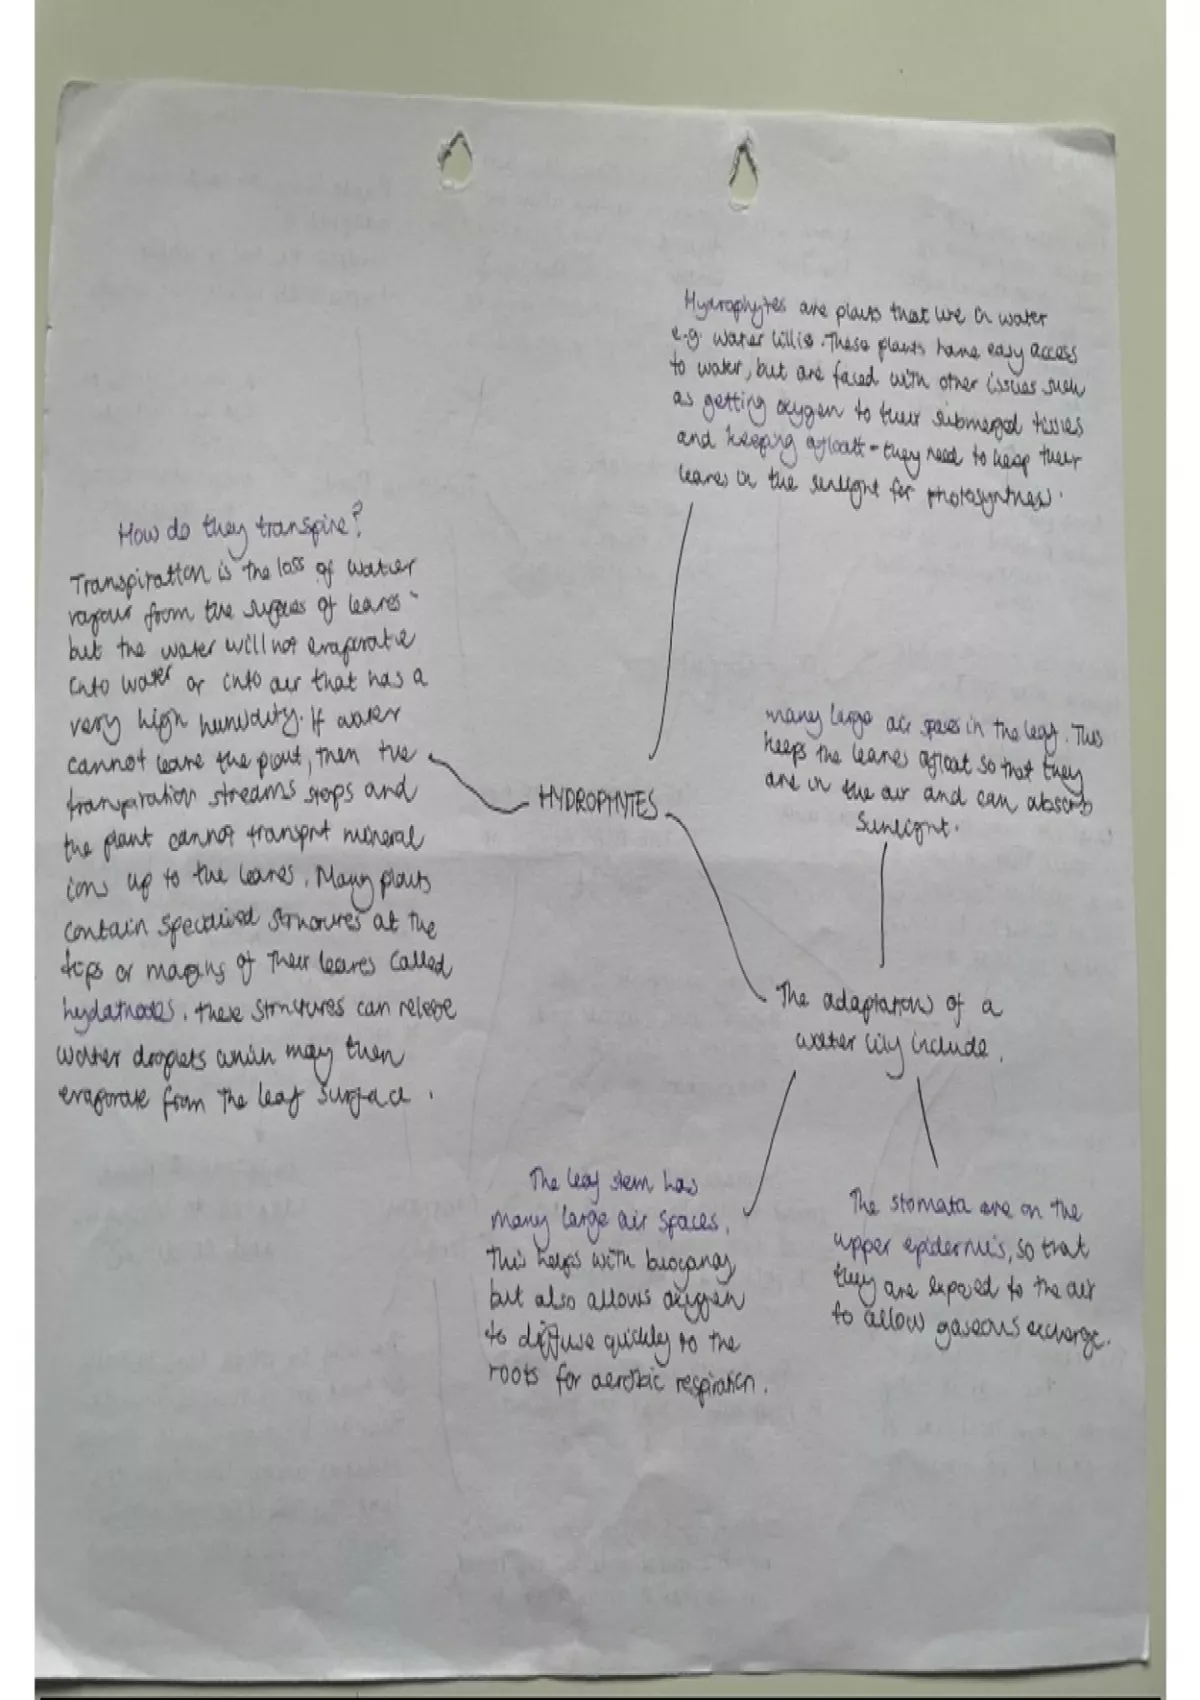 Hydrophytes are plants that live in water
e.g. water lillis. These plants have easy access
to water, but are faced with other issues such
as getting oxygen to their submerged tissues
and keeping afloat - they need to keep their
leaves in the sunlight for photosynthesis.
How do they transpire?
Transpiration is the loss of water
vapour from the surfaces of leaves -
but the water will not evaporate
into water or into air that has a
very high humidity. If water
cannot leave the plant, then the
transpiration streams stops and
the plant cannot transport mineral
ions up to the leaves. Many plants
contain specialised structures at the
tips or margins of their leaves called
hydathodes. These structures can release
water droplets which may then
evaporate from the leaf surface.
HYDROPHYTES
many large air spaces in the leaf. This
keeps the leaves afloat so that they
are in the air and can absorb
sunlight.
The adaptations of a
water lily include.
The leaf stem has
many large air spaces.
This helps with buoyancy
but also allows oxygen
to diffuse quickly to the
roots for aerobic respiration.
The stomata are on the
upper epidermis, so that
they are exposed to the air
to allow gaseous exchange.